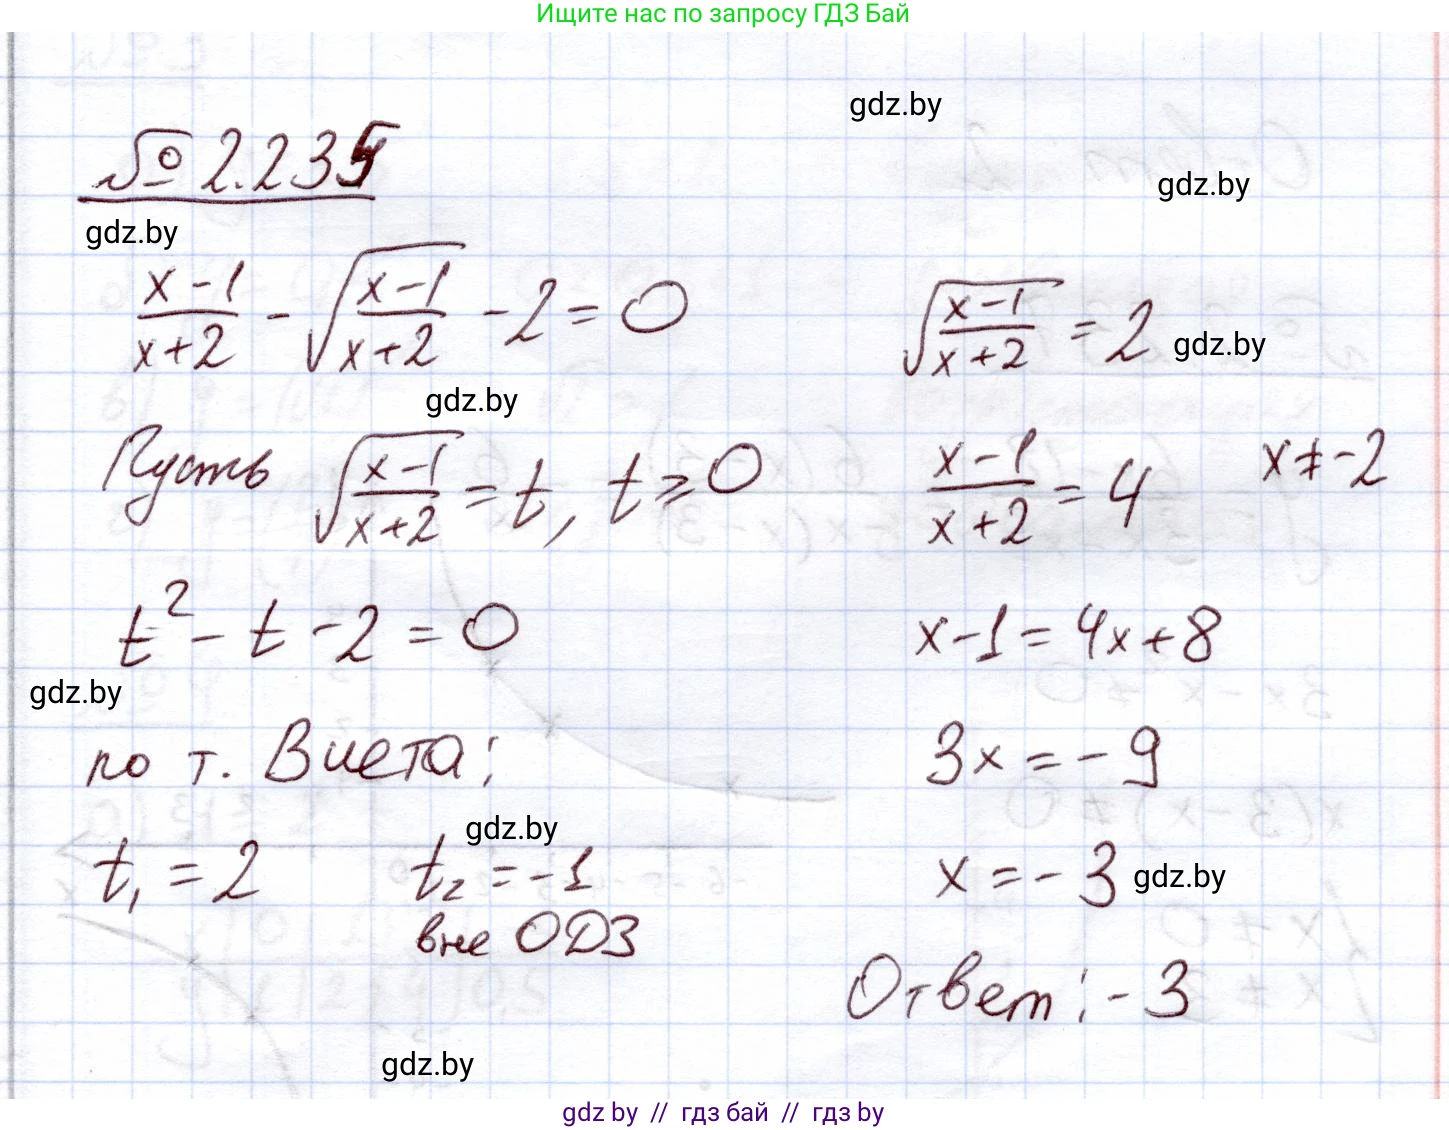 Ищите нас по запросу ГДЗ Бай
gdz.by
№ 2.235
gdz.by
gdz.by
(x-1)/(x+2) - √((x-1)/(x+2)) - 2 = 0
gdz.by
Пусть √((x-1)/(x+2)) = t, t ⩾ 0
t² - t - 2 = 0
gdz.by
по т. Виета:
gdz.by
t₁ = 2 t₂ = -1
вне ОДЗ
√((x-1)/(x+2)) = 2
gdz.by
(x-1)/(x+2) = 4 x ≠ -2
x-1 = 4x+8
3x = -9
x = -3
gdz.by
Ответ: -3
gdz.by
gdz by // гдз бай // гдз by